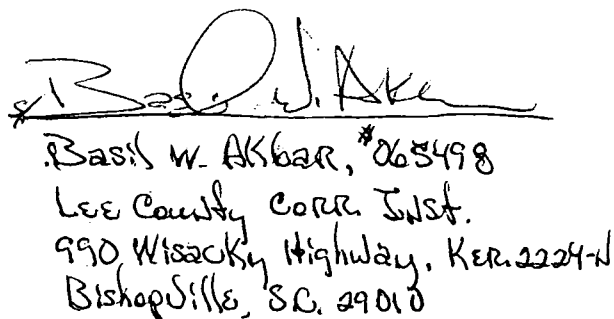 s/ Basil W. Akbar
Basil W. AKbar, #065498
Lee County Corr. Inst.
990 Wisacky Highway, Ker. 2224-N
Bishopville, SC. 29010